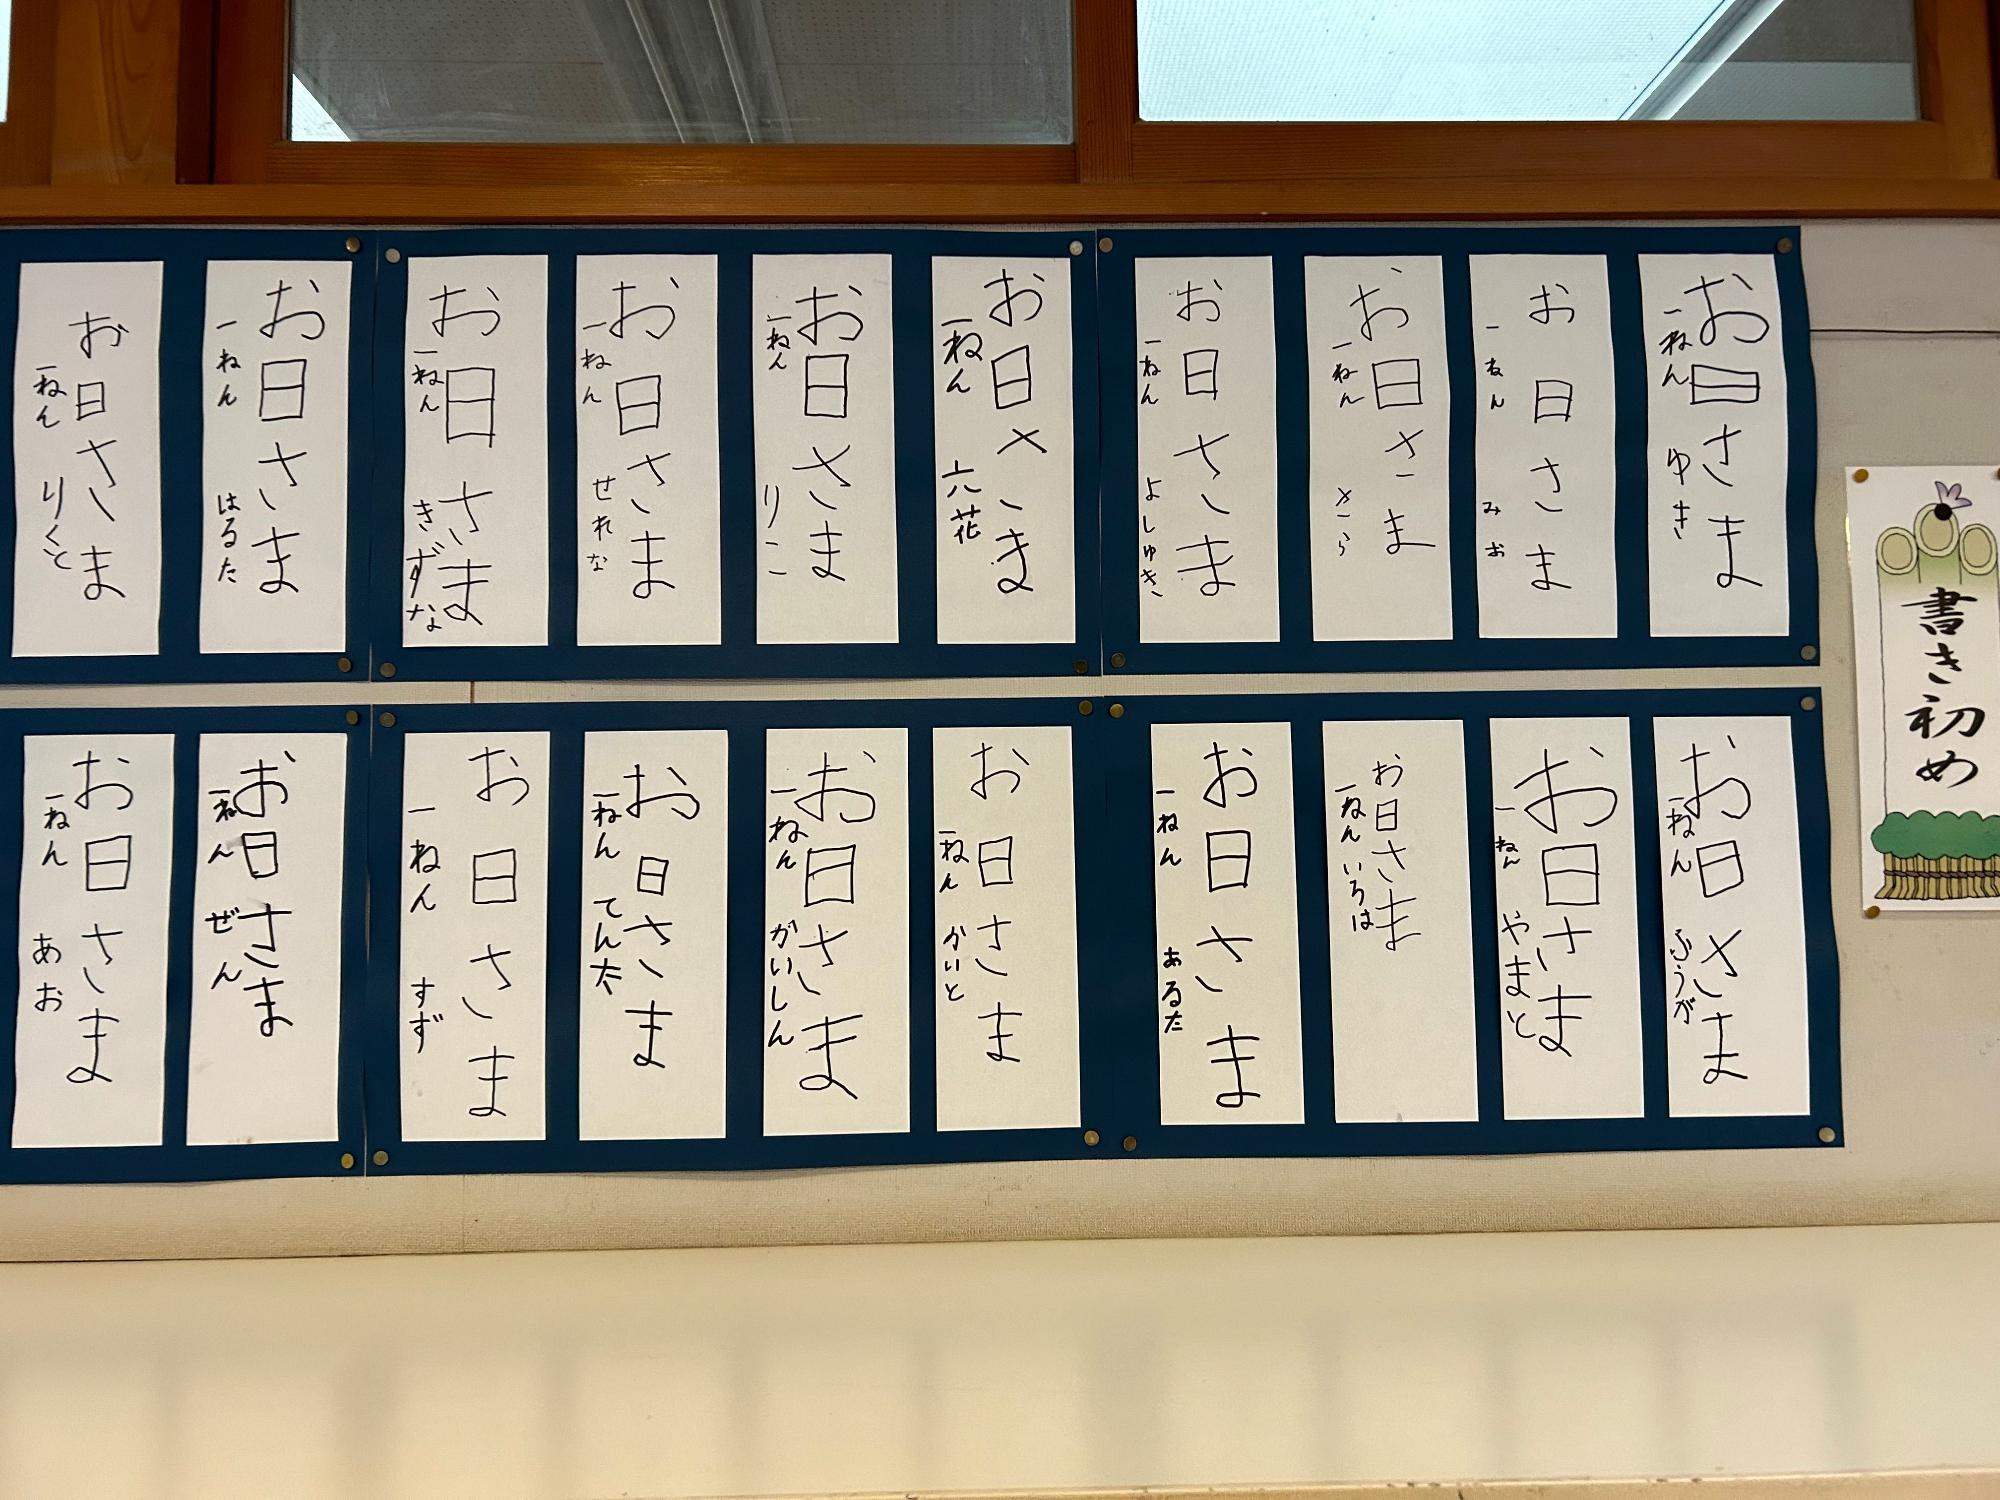 書き初め
お日さま
一ねん ゆき
お日さま
一ねん みお
お日さま
一ねん さら
お日さま
一ねん よしゆき
お日さま
一ねん 六花
お日さま
一ねん りこ
お日さま
一ねん せれな
お日さま
一ねん きずな
お日さま
一ねん はるた
お日さま
一ねん りくと
お日さま
一ねん ふうが
お日さま
一ねん やまと
お日さま
一ねん いろは
お日さま
一ねん あるた
お日さま
一ねん かいと
お日さま
一ねん がいしん
お日さま
一ねん てん太
お日さま
一ねん すず
お日さま
一ねん ぜん
お日さま
一ねん あお